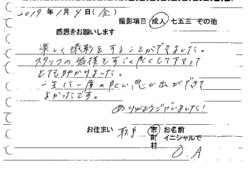 2019年1月4日(金)
撮影項目 成人 七五三 その他
感想をお願いします
楽しく撮影をすることができました。
スタッフの皆様もすごく良くして下さって
とても助かりました。
一生に一度の良い思い出ができて
よかったです。
ありがとうございました!
お住まい 市町村 お名前 イニシャルで
O.A